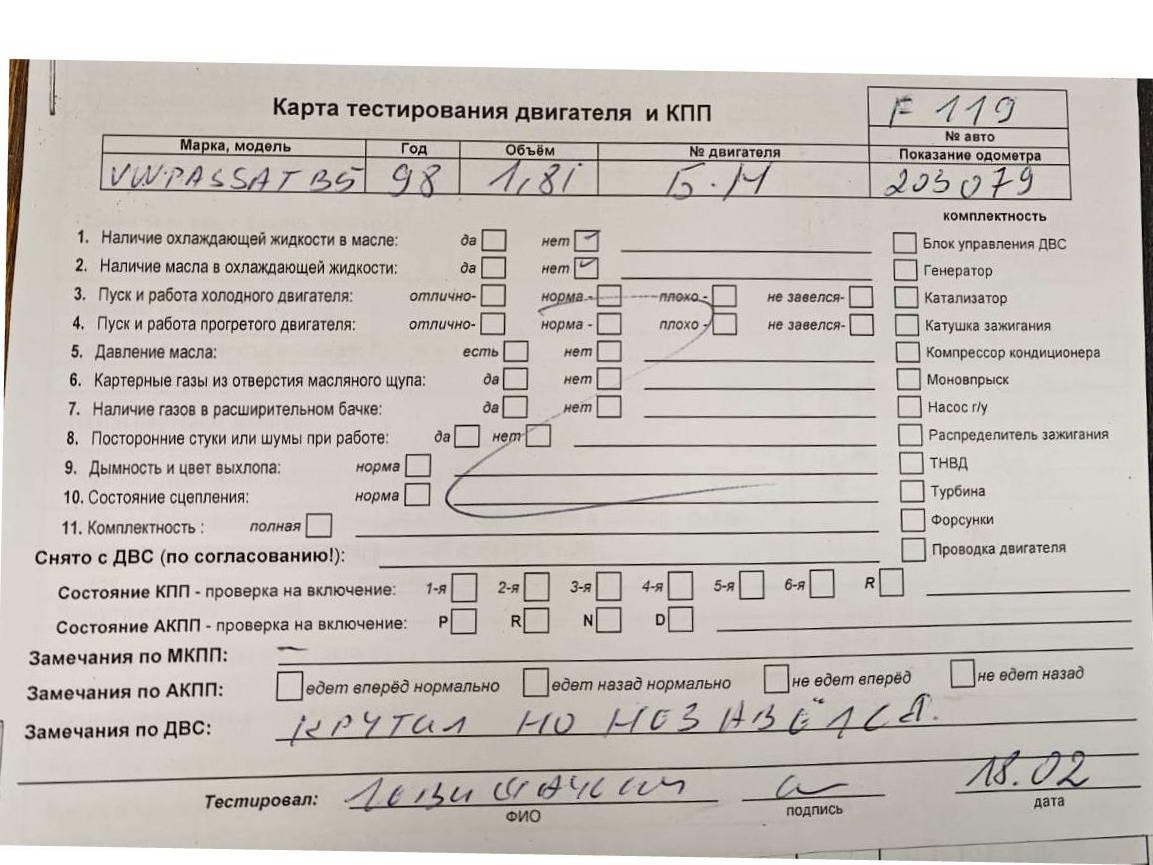 Карта тестирования двигателя и КПП
F 119
№ авто
Марка, модель Год Объём № двигателя Показание одометра
VW PASSAT B5 98 1,8i Б.Н 203079
комплектность
1. Наличие охлаждающей жидкости в масле: да нет
Блок управления ДВС
2. Наличие масла в охлаждающей жидкости: да нет
Генератор
3. Пуск и работа холодного двигателя: отлично- норма - плохо - не завелся-
Катализатор
4. Пуск и работа прогретого двигателя: отлично- норма - плохо - не завелся-
Катушка зажигания
5. Давление масла: есть нет
Компрессор кондиционера
6. Картерные газы из отверстия масляного щупа: да нет
Моновпрыск
7. Наличие газов в расширительном бачке: да нет
Насос г/у
8. Посторонние стуки или шумы при работе: да нет
Распределитель зажигания
9. Дымность и цвет выхлопа: норма
ТНВД
10. Состояние сцепления: норма
Турбина
11. Комплектность : полная
Форсунки
Снято с ДВС (по согласованию!):
Проводка двигателя
Состояние КПП - проверка на включение: 1-я 2-я 3-я 4-я 5-я 6-я R
Состояние АКПП - проверка на включение: P R N D
Замечания по МКПП: —
Замечания по АКПП: едет вперёд нормально едет назад нормально не едет вперёд не едет назад
Замечания по ДВС: КРУТИЛ НО НЕЗАВЁЛСЯ.
Тестировал:
18.02
ФИО подпись дата